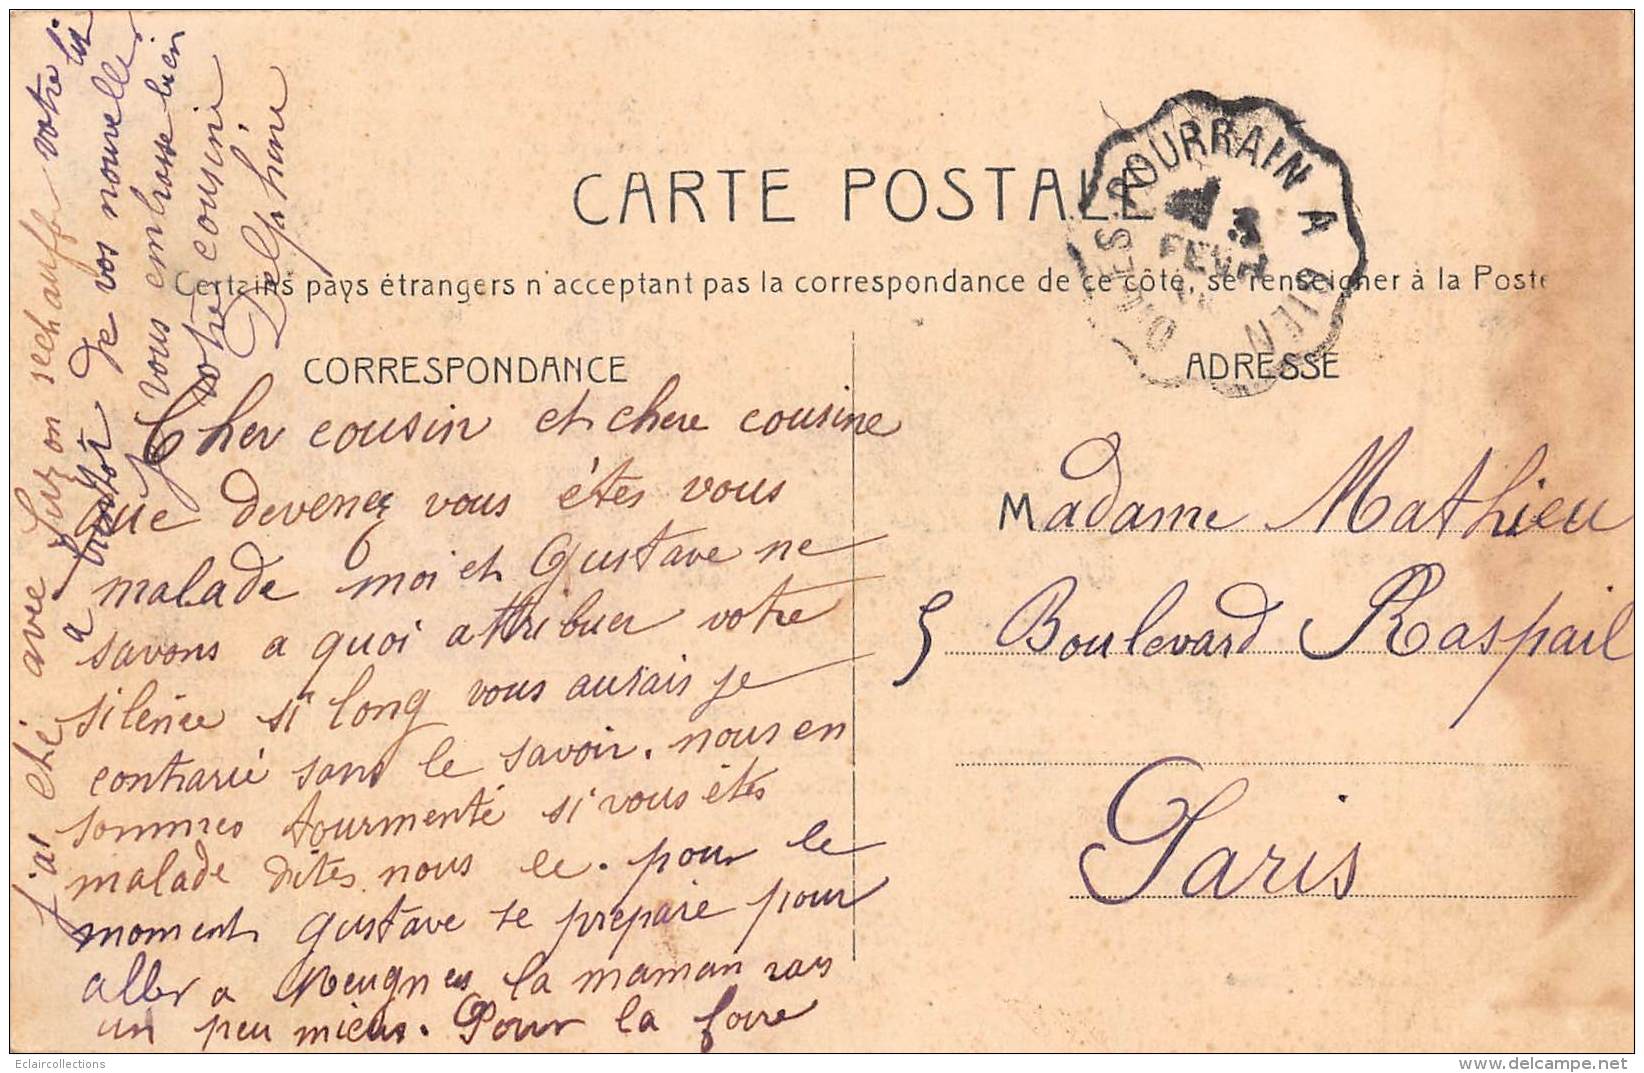 CARTE POSTALE
Certains pays étrangers n'acceptant pas la correspondance de ce côté, se renseigner à la Poste
CORRESPONDANCE
ADRESSE
POURRAIN A GIEN
3
FEVR
Cher cousin et chere cousine
que devenez vous étes vous
malade moi et Gustave ne
savons a quoi attribuer votre
silence si long vous aurais je
contrarié sans le savoir. nous en
sommes tourmenté si vous étes
malade dites nous le. pour le
moment gustave se prepare pour
aller a la maman vas
un peu mieux. Pour la foire
j'ai été avec rechauffe votre lit
a bientot de vos nouvelles
je vous embrasse bien
votre cousine
Delphine
Madame Mathieu
5 Boulevard Raspail
Paris
Eclaircollections
www.delcampe.net